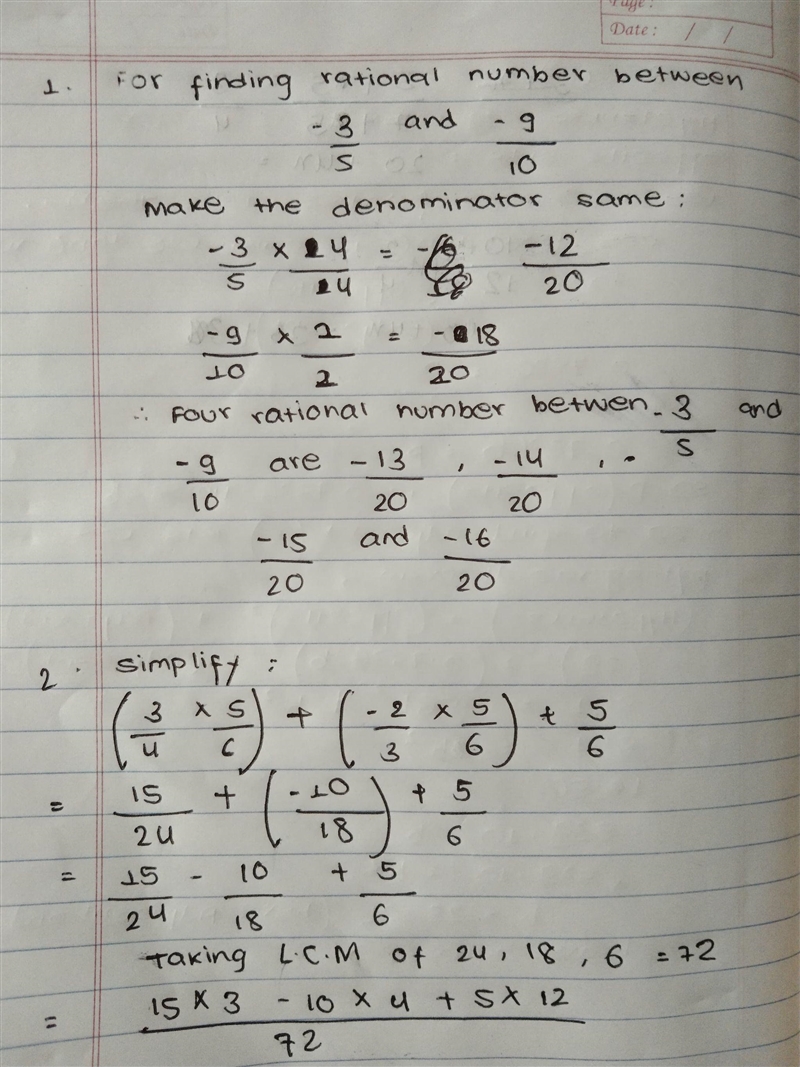 Page :
Date : / /
1. For finding rational number between
-3/5 and -9/10
Make the denominator same :
-3/5 × 4/4 = -12/20
-9/10 × 2/2 = -18/20
∴ Four rational number betwen -3/5 and
-9/10 are -13/20 , -14/20 ,
-15/20 and -16/20
2. Simplify :
(3/4 × 5/6) + (-2/3 × 5/6) + 5/6
= 15/24 + (-10/18) + 5/6
= 15/24 - 10/18 + 5/6
Taking L.C.M of 24, 18, 6 = 72
= 15 × 3 - 10 × 4 + 5 × 12 / 72